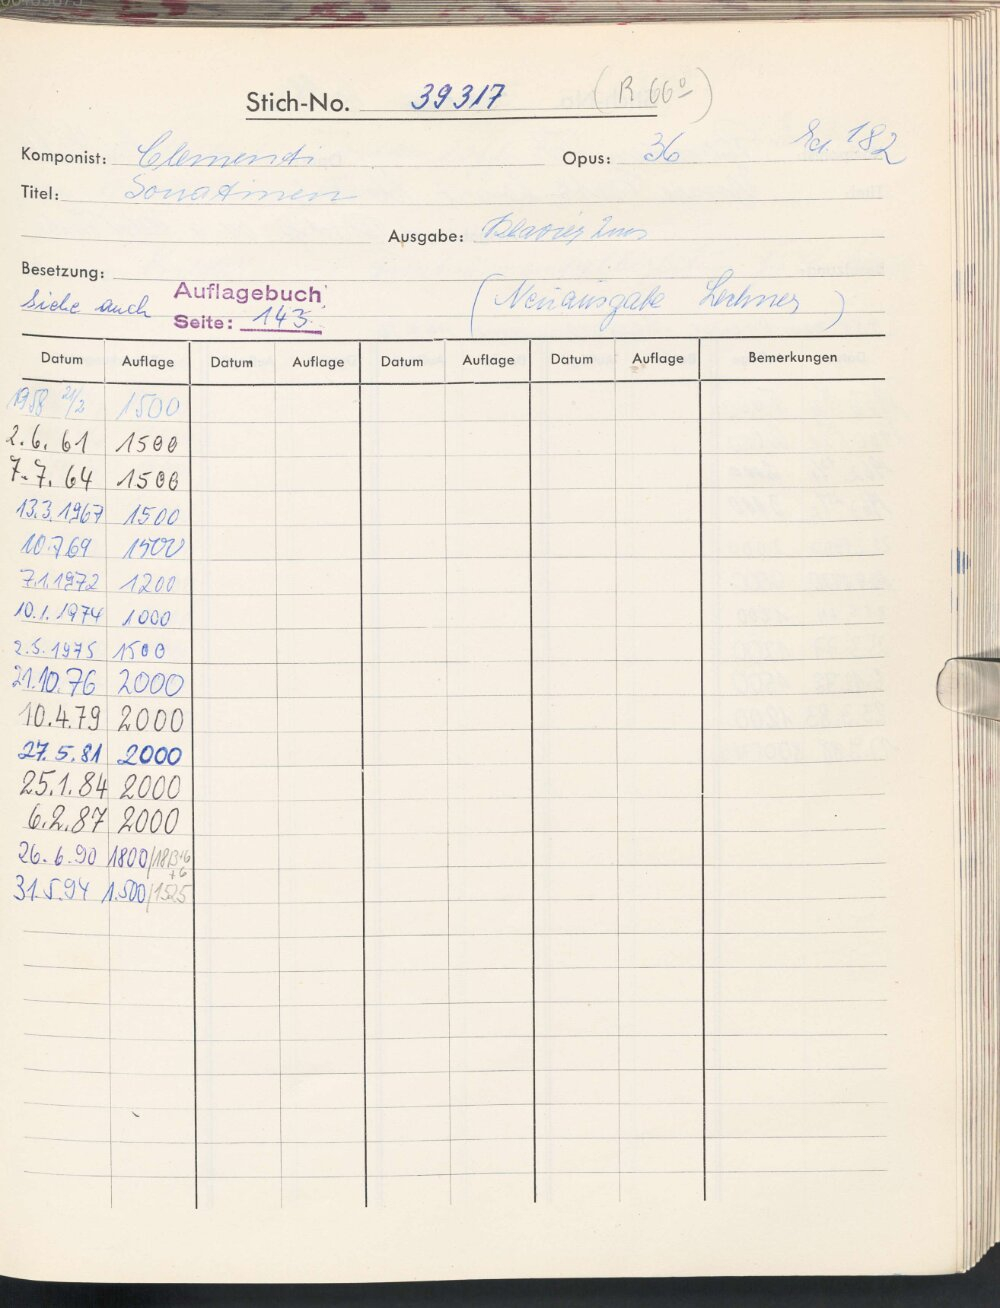 Stich-No. 39317 (R 66º)
Komponist: Clementi Opus: 36 Ed. 182
Titel: Sonatinen
Ausgabe: Klavier 2ms
Besetzung:
Siehe auch Auflagebuch (Neuausgabe Lechner)
Seite: 143
Datum Auflage Datum Auflage Datum Auflage Datum Auflage Bemerkungen
1958 21/2 1500
2.6.61 1500
7.7.64 1500
13.3.1967 1500
10.7.69 1500
7.1.1972 1200
10.1.1974 1000
2.5.1975 1500
21.10.76 2000
10.4.79 2000
27.5.81 2000
25.1.84 2000
6.2.87 2000
26.6.90 1800/
31.5.94 1.500/1525